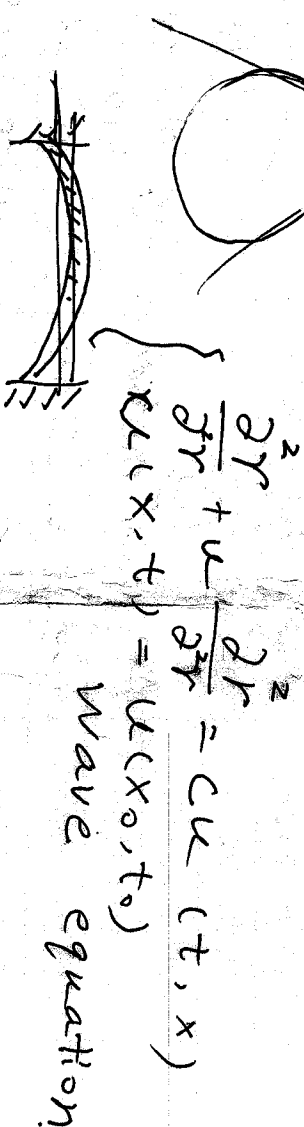 ∂²r/∂r + u ∂²r/∂²r = cu (t, x)
u(x, t) = u(x₀, t₀)
wave equation.